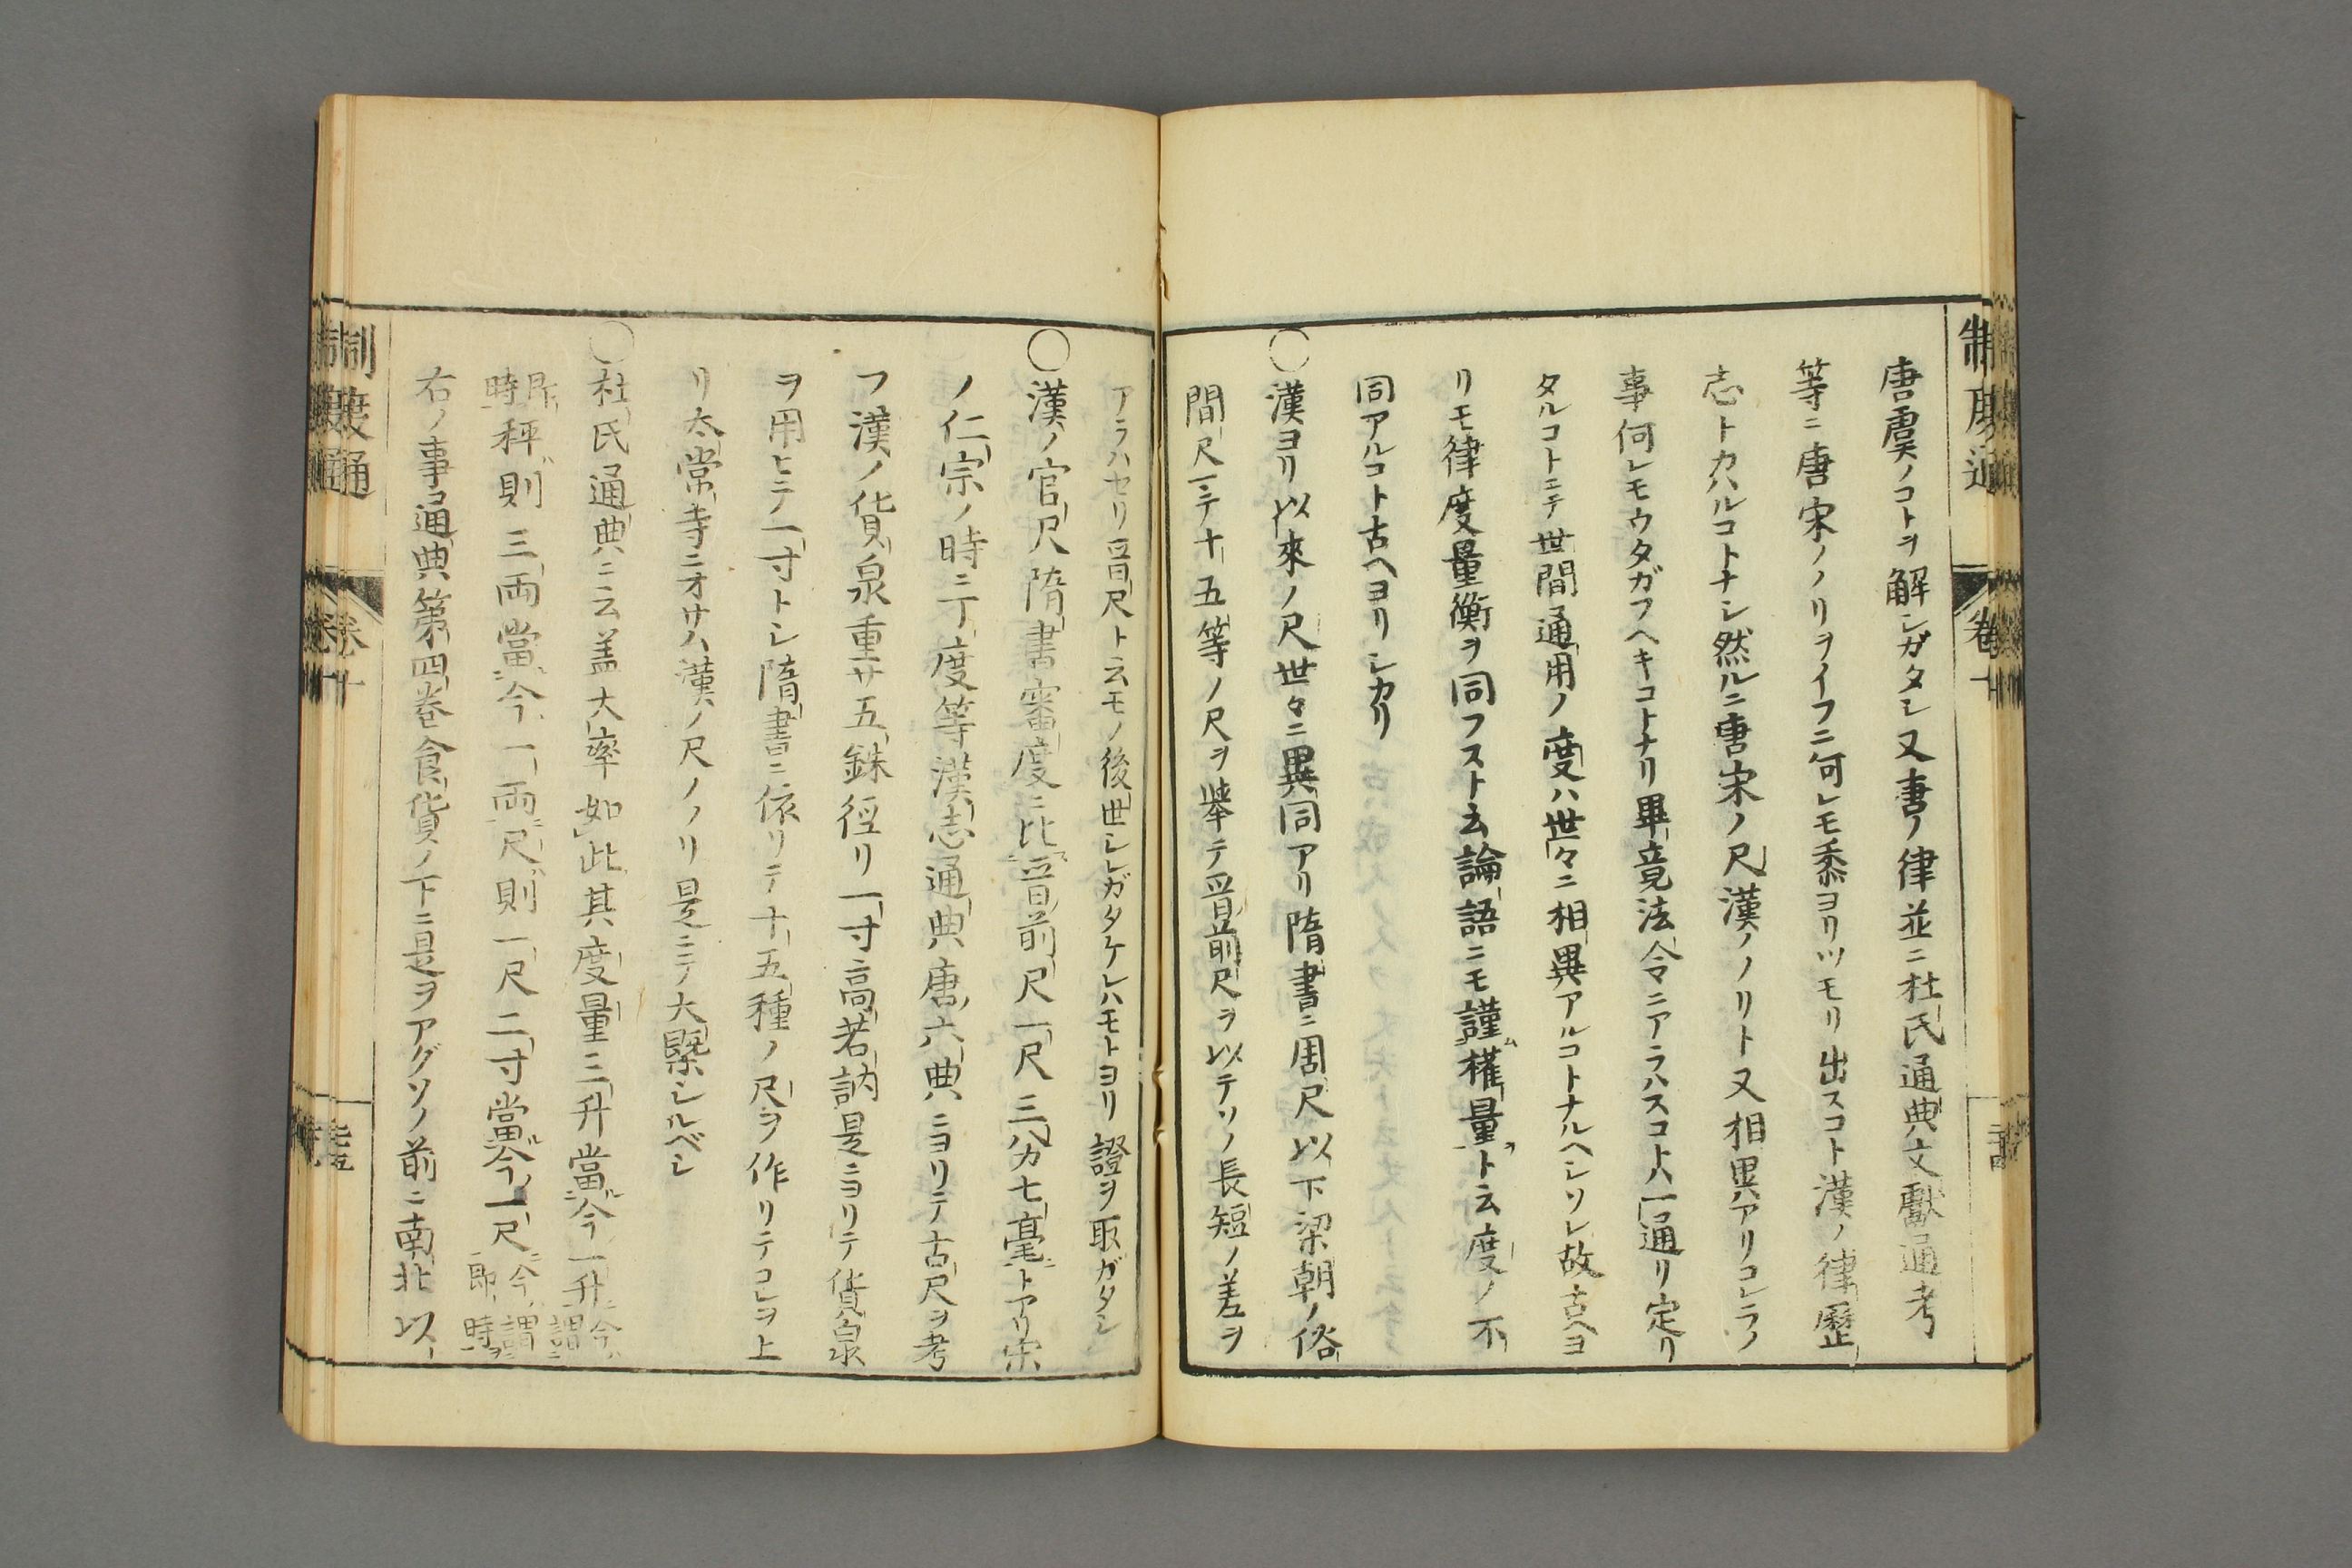 唐虞ノコトヲ解シガタシ又書ノ律並ニ杜氏通典文獻通考
等ニ唐宋ノノリヲイフニ何レモ黍ヨリツモリ出スコト漢ノ律歷
志トカハルコトナシ然ルニ唐宋ノ尺漢ノノリト又相異アリコレラノ
事何レモウタガフヘキコトナリ畢竟法令ニアラハスコトハ一通リ定リ
タルコトニテ世間通用ノ度ハ世々ニ相異アルコトナルヘシソレ故古ヘヨ
リモ律度量衡ヲ同フスト云論語ニモ謹權量ト云度ノ不
同アルコト古ヘヨリシカリ
〇漢ヨリ以來ノ尺世々ニ異同アリ隋書ニ周尺以下梁朝ノ俗
間尺ニテ十五等ノ尺ヲ舉テ晉前尺ヲ以テソノ長短ノ差ヲ
アラハセリ晉尺ト云モノ後世シレガタケレハモトヨリ證ヲ取ガタシ
〇漢ノ官尺隋書審度ニ比晉前尺一尺三分七毫トアリ宋
ノ仁宗ノ時ニ丁度等漢志通典唐六典ニヨリテ古尺ヲ考
フ漢ノ貨泉重サ五銖徑リ一寸ニ高若訥是ニヨリテ貨泉
ヲ用ヒテ一寸トシ隋書ニ依リテ十五種ノ尺ヲ作リテコレヲ上
リ太常寺ニオサム漢ノ尺ノノリ是ニテ大槩シルベシ
〇杜氏通典ニ云盖大率如此其度量三升當今一升今謂
即時秤則三両當今一両尺則一尺二寸當今一尺今謂即時
右ノ事通典第四卷食貨ノ下ニ是ヲアグソノ前ニ南北以
制度通
卷十
制度通
卷十